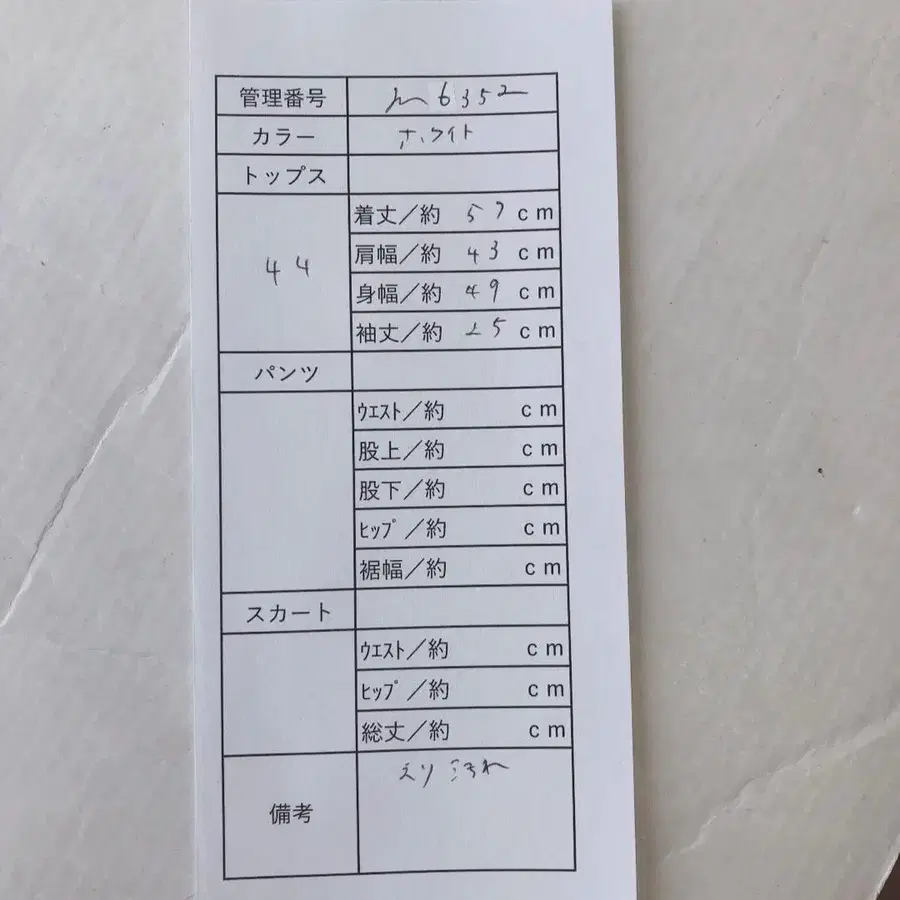 管理番号 m6352
カラー ホワイト
トップス
44
着丈／約 57 cm
肩幅／約 43 cm
身幅／約 49 cm
袖丈／約 15 cm
パンツ
ｳｴｽﾄ／約 cm
股上／約 cm
股下／約 cm
ﾋｯﾌﾟ／約 cm
裾幅／約 cm
スカート
ｳｴｽﾄ／約 cm
ﾋｯﾌﾟ／約 cm
総丈／約 cm
備考 えり汚れ